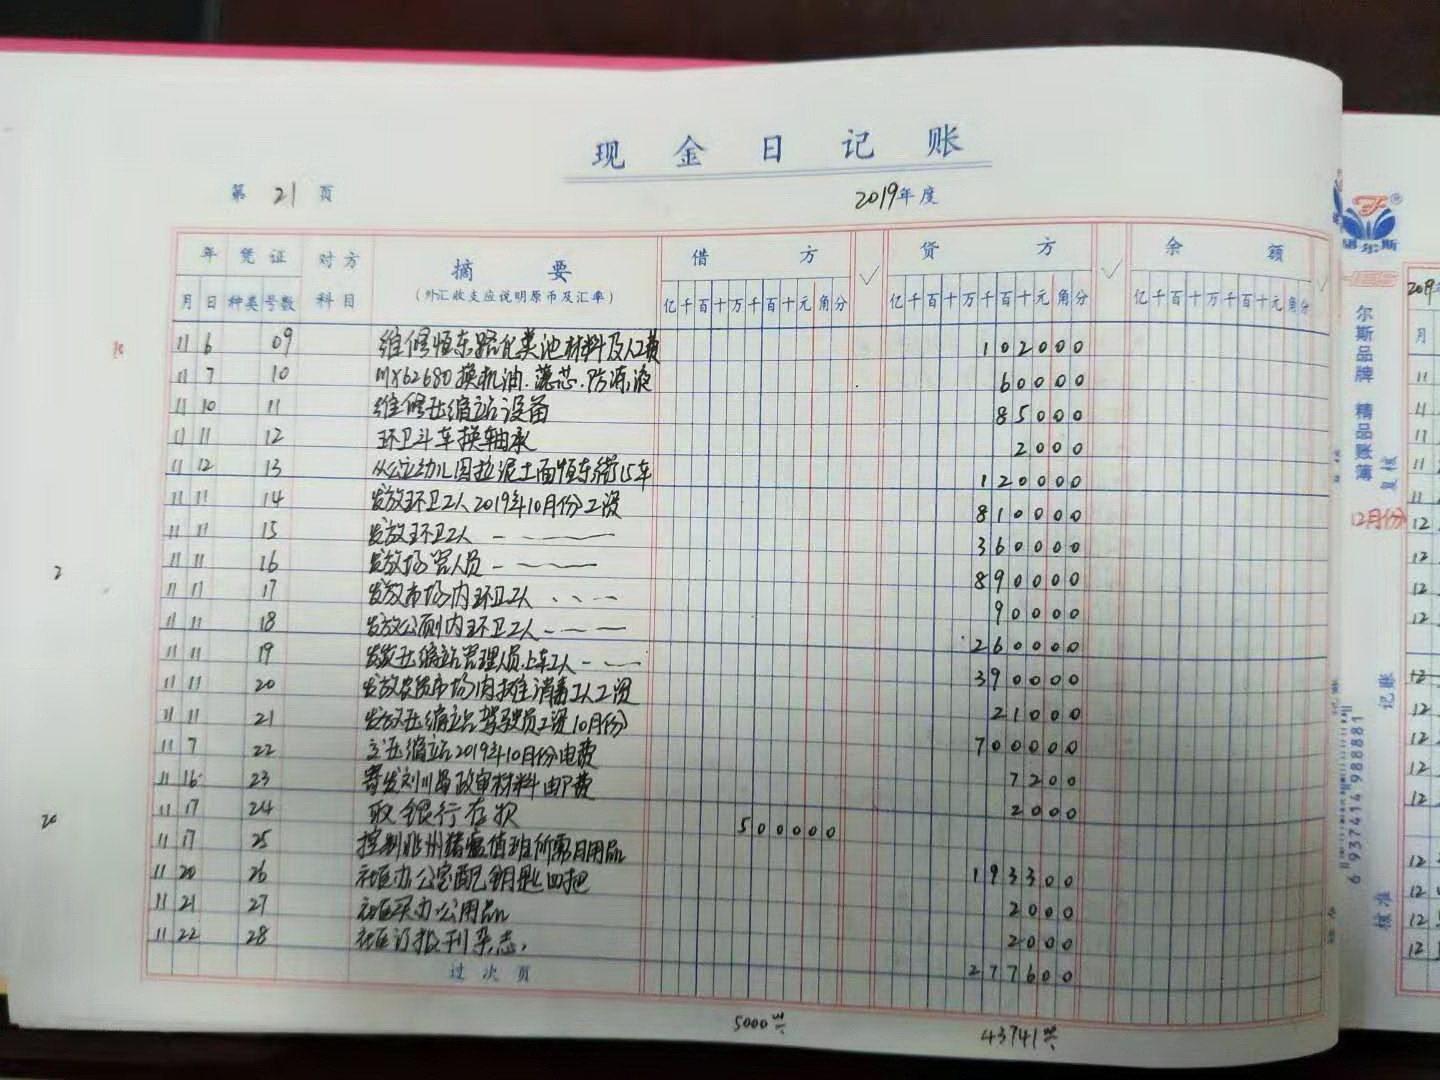 现金日记账
第 21 页
2019年度
年 凭证 对方 摘要 借方 贷方 余额
月 日 种类 号数 科目 (外汇收支应说明原币及汇率) 亿千百十万千百十元角分 亿千百十万千百十元角分 亿千百十万千百十元角分
11 6 09 维修恒东路化粪池材料及人工费 102000
11 7 10 换机油.滤芯.防冻液 60000
11 10 11 维修压缩站设备 85000
11 11 12 环卫斗车换轴承 2000
11 12 13 从公立幼儿园拉泥土面恒东街15车 120000
11 11 14 发放环卫工人2019年10月份工资 810000
11 11 15 发放环卫工人 360000
11 11 16 发放场管人员 890000
11 11 17 发放市场内环卫工人 90000
11 11 18 发放公厕内环卫工人 260000
11 11 19 发放压缩站管理人员.上车工人 390000
11 11 20 发放农贸市场肉摊消毒工人工资 21000
11 11 21 发放压缩站驾驶员工资10月份 700000
11 7 22 压缩站2019年10月份电费 7200
11 16 23 寄发材料邮费 2000
11 17 24 取银行存款 500000
11 17 25 控制非州猪瘟值班所需用品 193300
11 20 26 社区办公室配钥匙四把 2000
11 21 27 社区买办公用品 2000
11 22 28 社区订报刊杂志, 277600
过次页
5000
43741
2
20
尔斯品牌 精品账簿
复核
12月份
记账
核准
6 937414 988881
2019
月
11
11
11
11
11
12
12
12
12
12
12
12
12
12
12
12
12
12